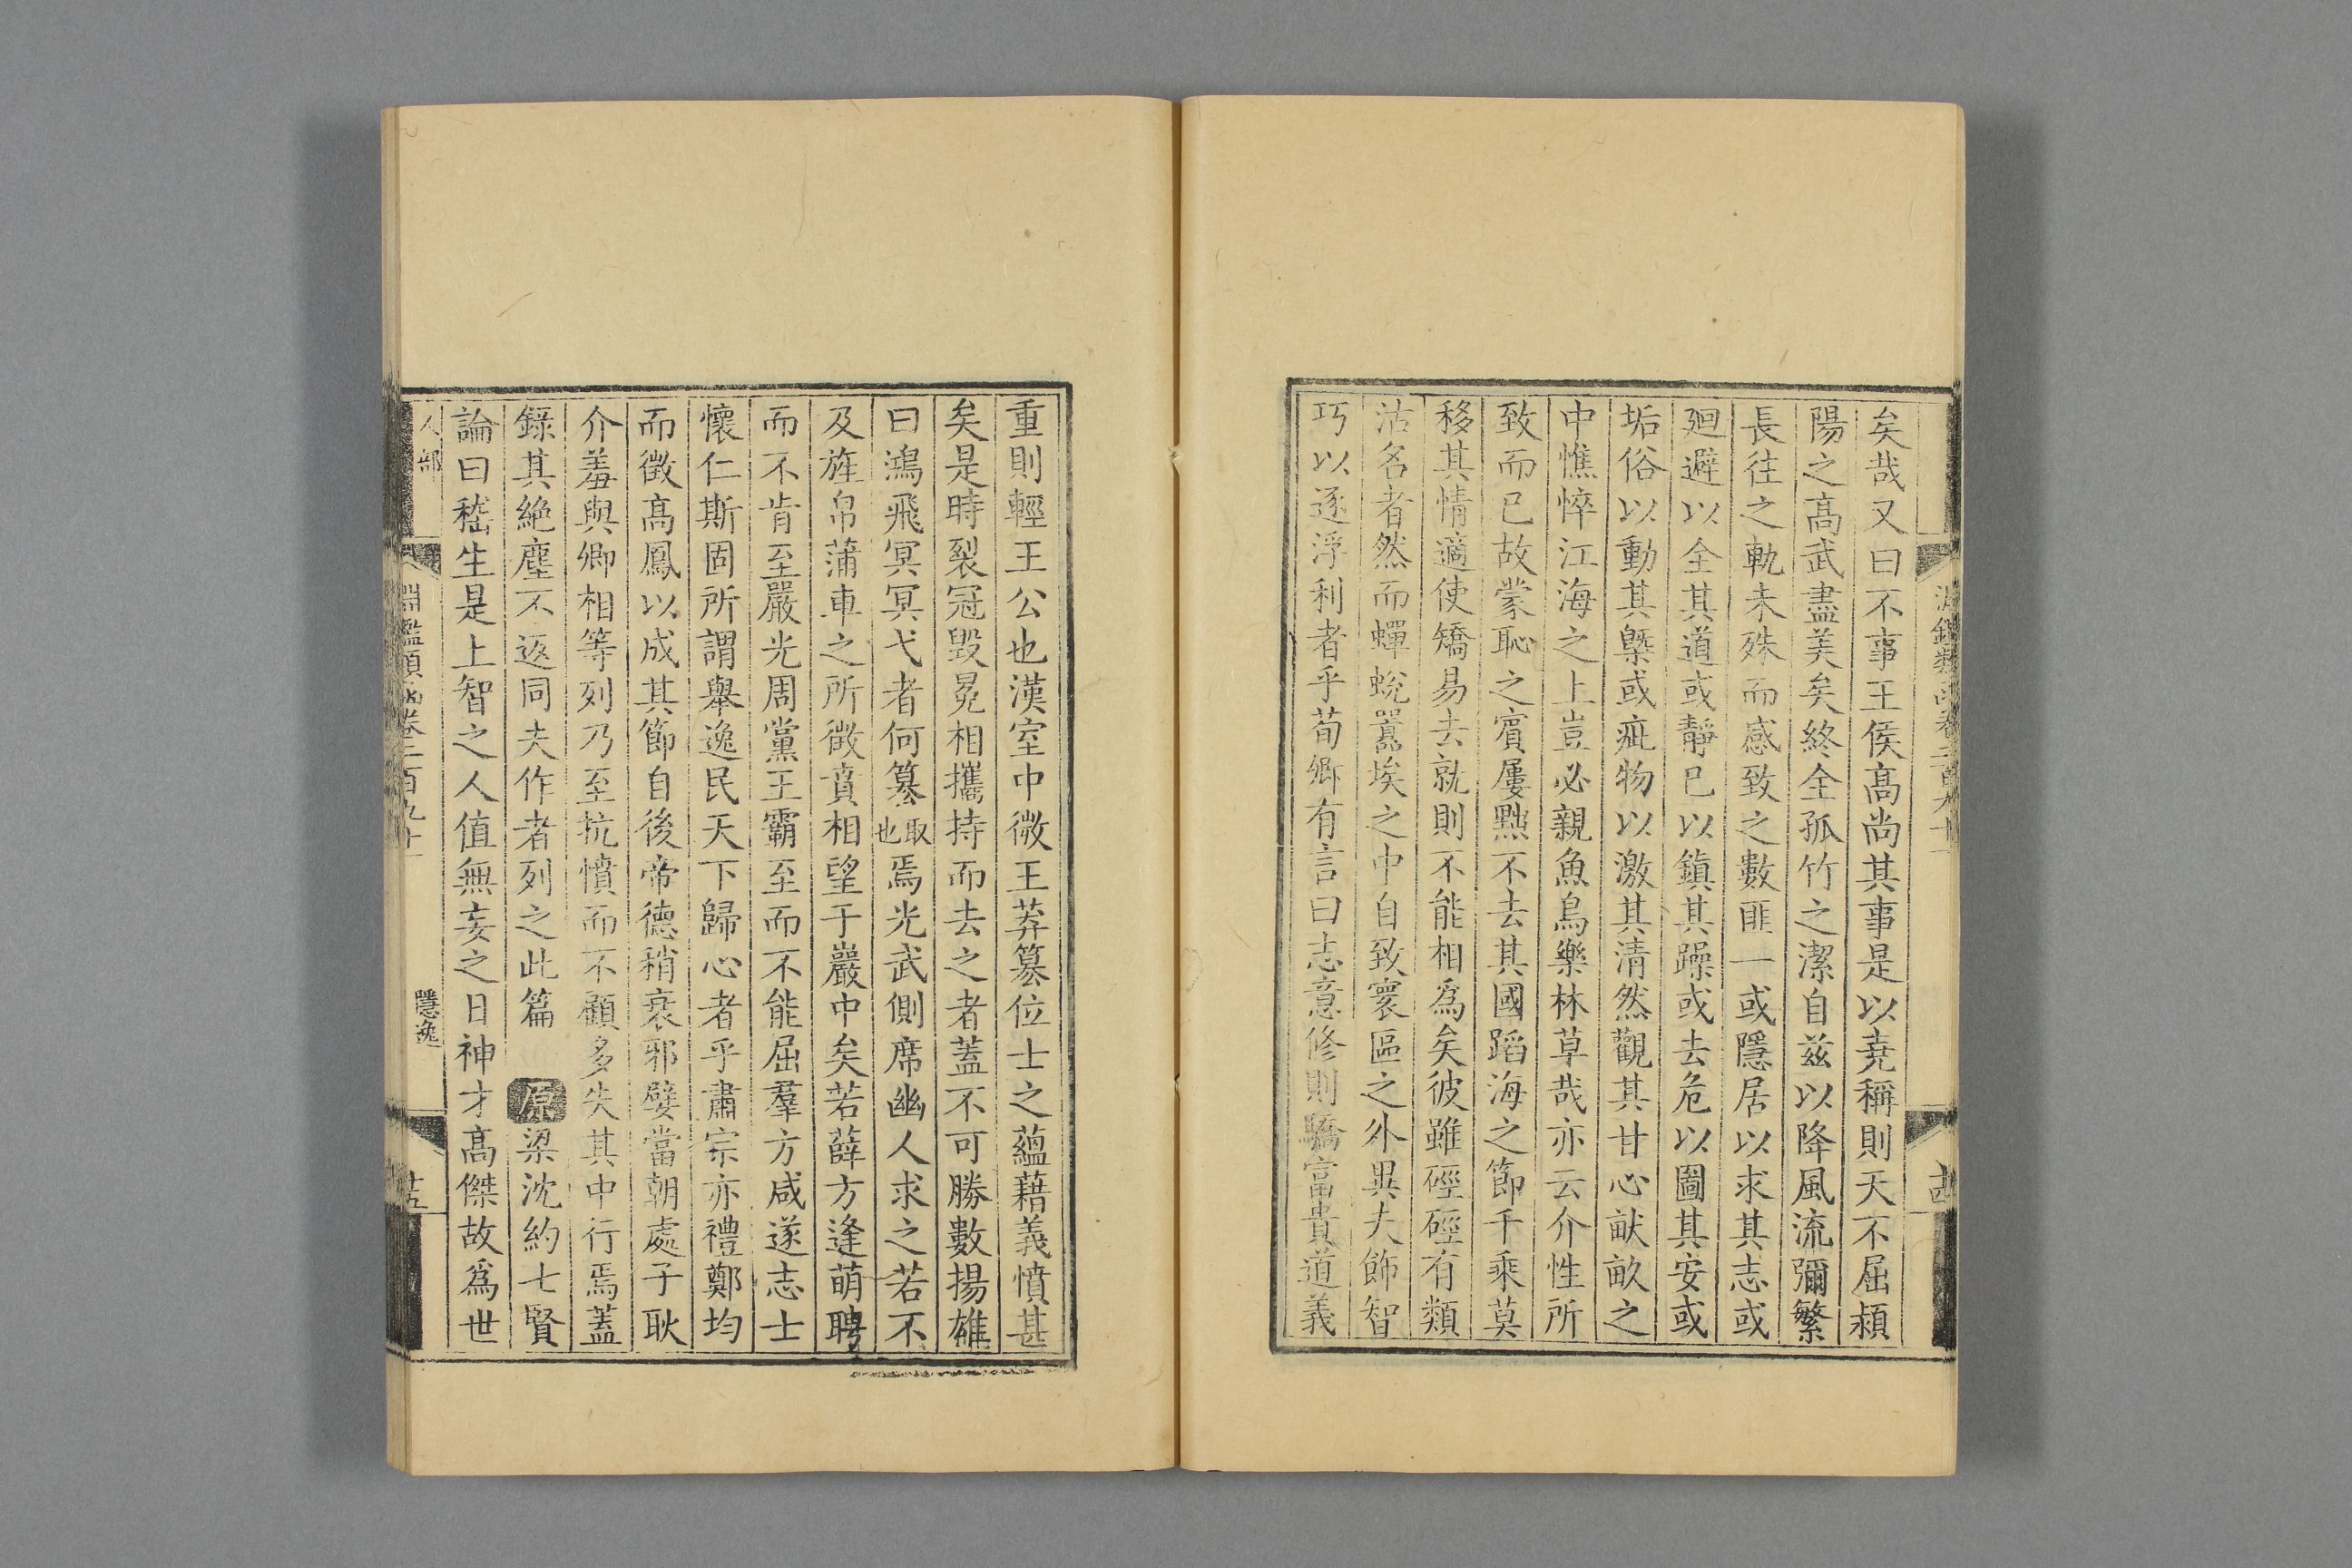 矣哉又曰不事王侯高尚其事是以堯稱則天不屈潁
陽之高武盡美矣終全孤竹之潔自兹以降風流彌繁
長往之軌未殊而感致之數匪一或隱居以求其志或
廻避以全其道或靜已以鎮其躁或去危以圖其安或
垢俗以動其槩或疵物以激其清然觀其甘心畎畝之
中憔悴江海之上豈必親魚鳥樂林草哉亦云介性所
致而已故蒙恥之賓屢黜不去其國蹈海之節千乘莫
移其情適使矯易去就則不能相為矣彼雖硜硜有類
沽名者然而蟬蛻囂埃之中自致寰區之外異夫飾智
巧以逐浮利者乎荀卿有言曰志意修則驕富貴道義
重則輕王公也漢室中微王莽篡位士之蘊藉義憤甚
矣是時裂冠毀冕相攜持而去之者蓋不可勝數揚雄
曰鴻飛冥冥弋者何篡取也焉光武側席幽人求之若不
及旌帛蒲車之所徵賁相望于巖中矣若薛方逢萌聘
而不肯至嚴光周黨王霸至而不能屈羣方咸遂志士
懷仁斯固所謂舉逸民天下歸心者乎肅宗亦禮鄭均
而徵高鳳以成其節自後帝德稍衰邪孽當朝處子耿
介羞與卿相等列乃至抗憤而不顧多失其中行焉蓋
錄其絶塵不返同夫作者列之此篇 原 梁沈約七賢
論曰嵇生是上智之人值無妄之日神才高傑故為世
人部 淵鑑類函卷二百九十 隱逸 十五